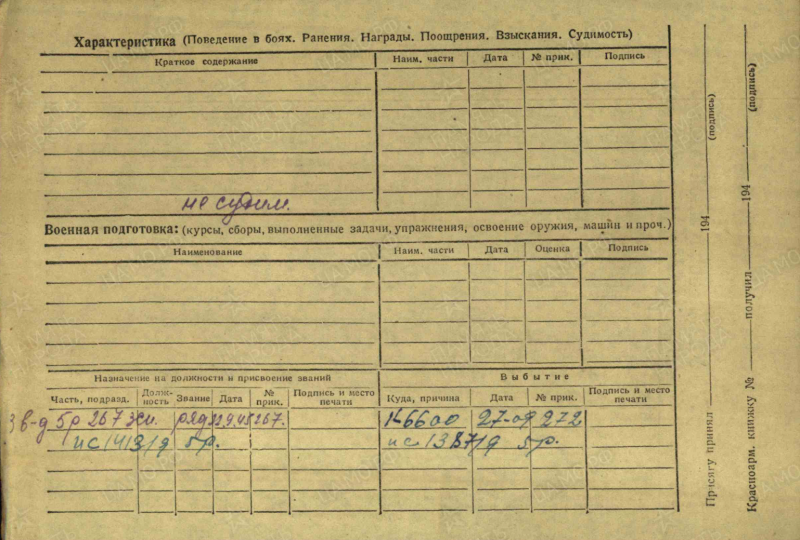 Характеристика (Поведение в боях. Ранения. Награды. Поощрения. Взыскания. Судимость)
Краткое содержание Наим. части Дата № прик. Подпись
не судим.
Военная подготовка: (курсы, сборы, выполненные задачи, упражнения, освоение оружия, машин и проч.)
Наименование Наим. части Дата Оценка Подпись
Назначение на должности и присвоение званий
Выбытие
Часть, подразд. Должность Звание Дата № прик. Подпись и место печати
Куда, причина Дата № прик. Подпись и место печати
3 в-д 5р 267 ряд 267.
272
5р.
5р.
Присягу принял 194 (подпись)
Красноарм. книжку № получил 194 (подпись)